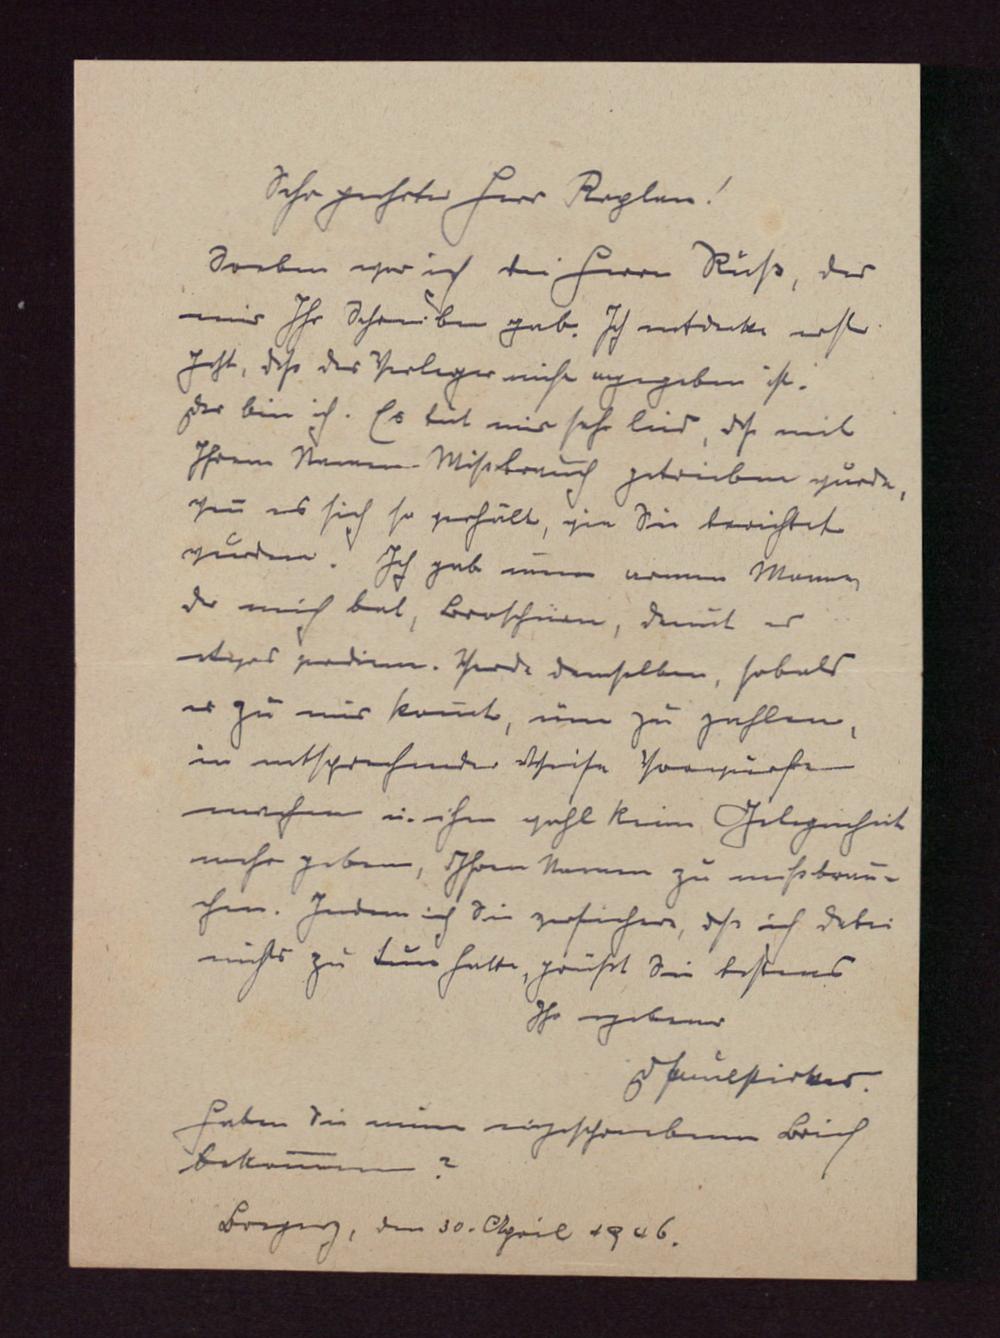 Sehr geehrter Herr Kaplan!
Soeben war ich bei Herrn Ruß, der
mir Ihr Schreiben gab. Ich entdecke erst
jetzt, daß der Verleger nicht angegeben ist.
Der bin ich. Es tut mir sehr leid, daß mit
Ihrem Namen Mißbrauch getrieben wurde,
wenn es sich so verhält, wie Sie berichtet
wurden. Ich gab einem armen Manne,
der mich bat, Broschüren, damit er
etwas verdiene. Werde demselben, sobald
er zu mir kommt, um zu zahlen,
in entsprechender Weise Vorwürfe
machen u. ihm wohl keine Gelegenheit
mehr geben, Ihren Namen zu mißbrau-
chen. Indem ich Sie versichere, daß ich dabei
nichts zu tun hatte, grüßt Sie bestens
Ihr ergebener
Haben Sie meinen eingeschriebenen Brief
bekommen?
Bregenz, den 30. April 1946.